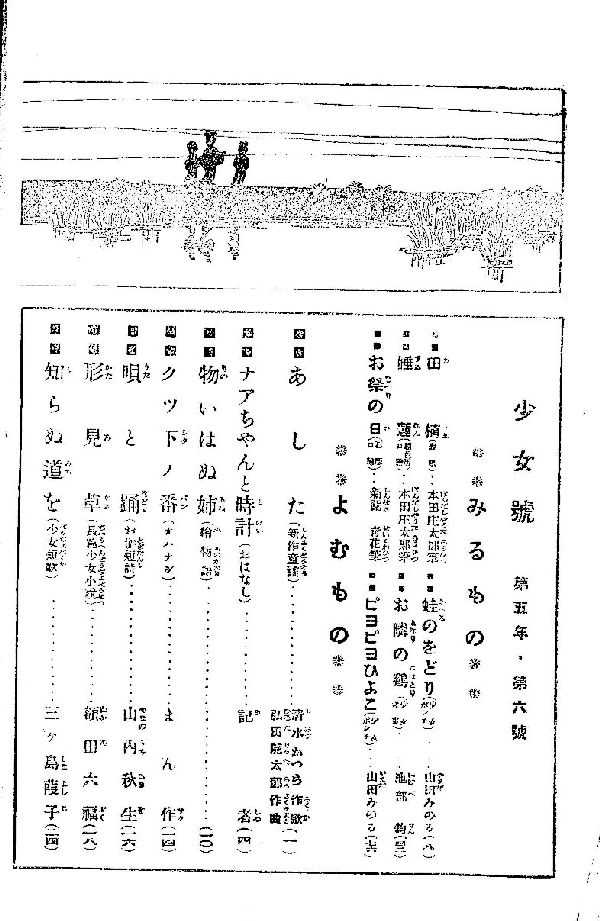 少女號　第五年・第六號
みるもの
田植　本田庄太郎筆
蛙のをどり　山田みのる
睡蓮　本田庄太郎筆
お隣の鶏　池部鈞
お祭の日
ピヨピヨひよこ　山田みのる
よむもの
あした（新作童謠）　清水かつら作歌　弘田龍太郎作曲（一）
ナアちやんと時計（おはなし）　記者（四）
物いはぬ姉（繪物語）（一〇）
クツ下ノ番（オハナシ）　まん作（一四）
唄と踊　山内秋生（一六）
形見草（長篇少女小説）　六福（一八）
知らぬ道を（少女短歌）　三ヶ島葭子